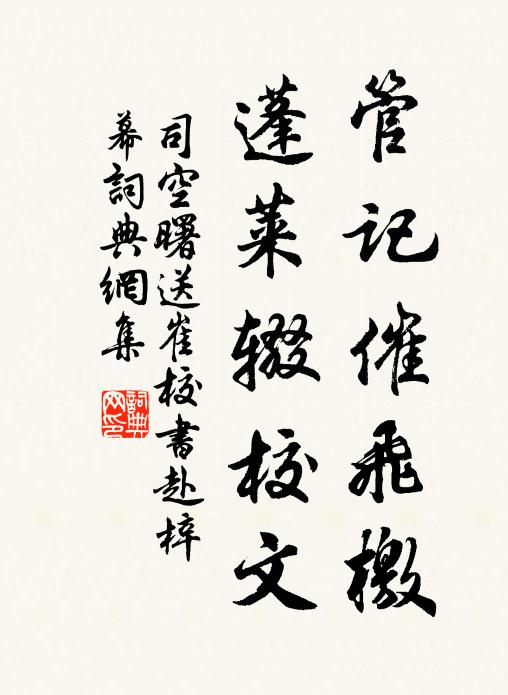 管记催飛檄
蓬莱辍校文
司空曙送崔校書赴梓
幕詞典網集
詞典
网印